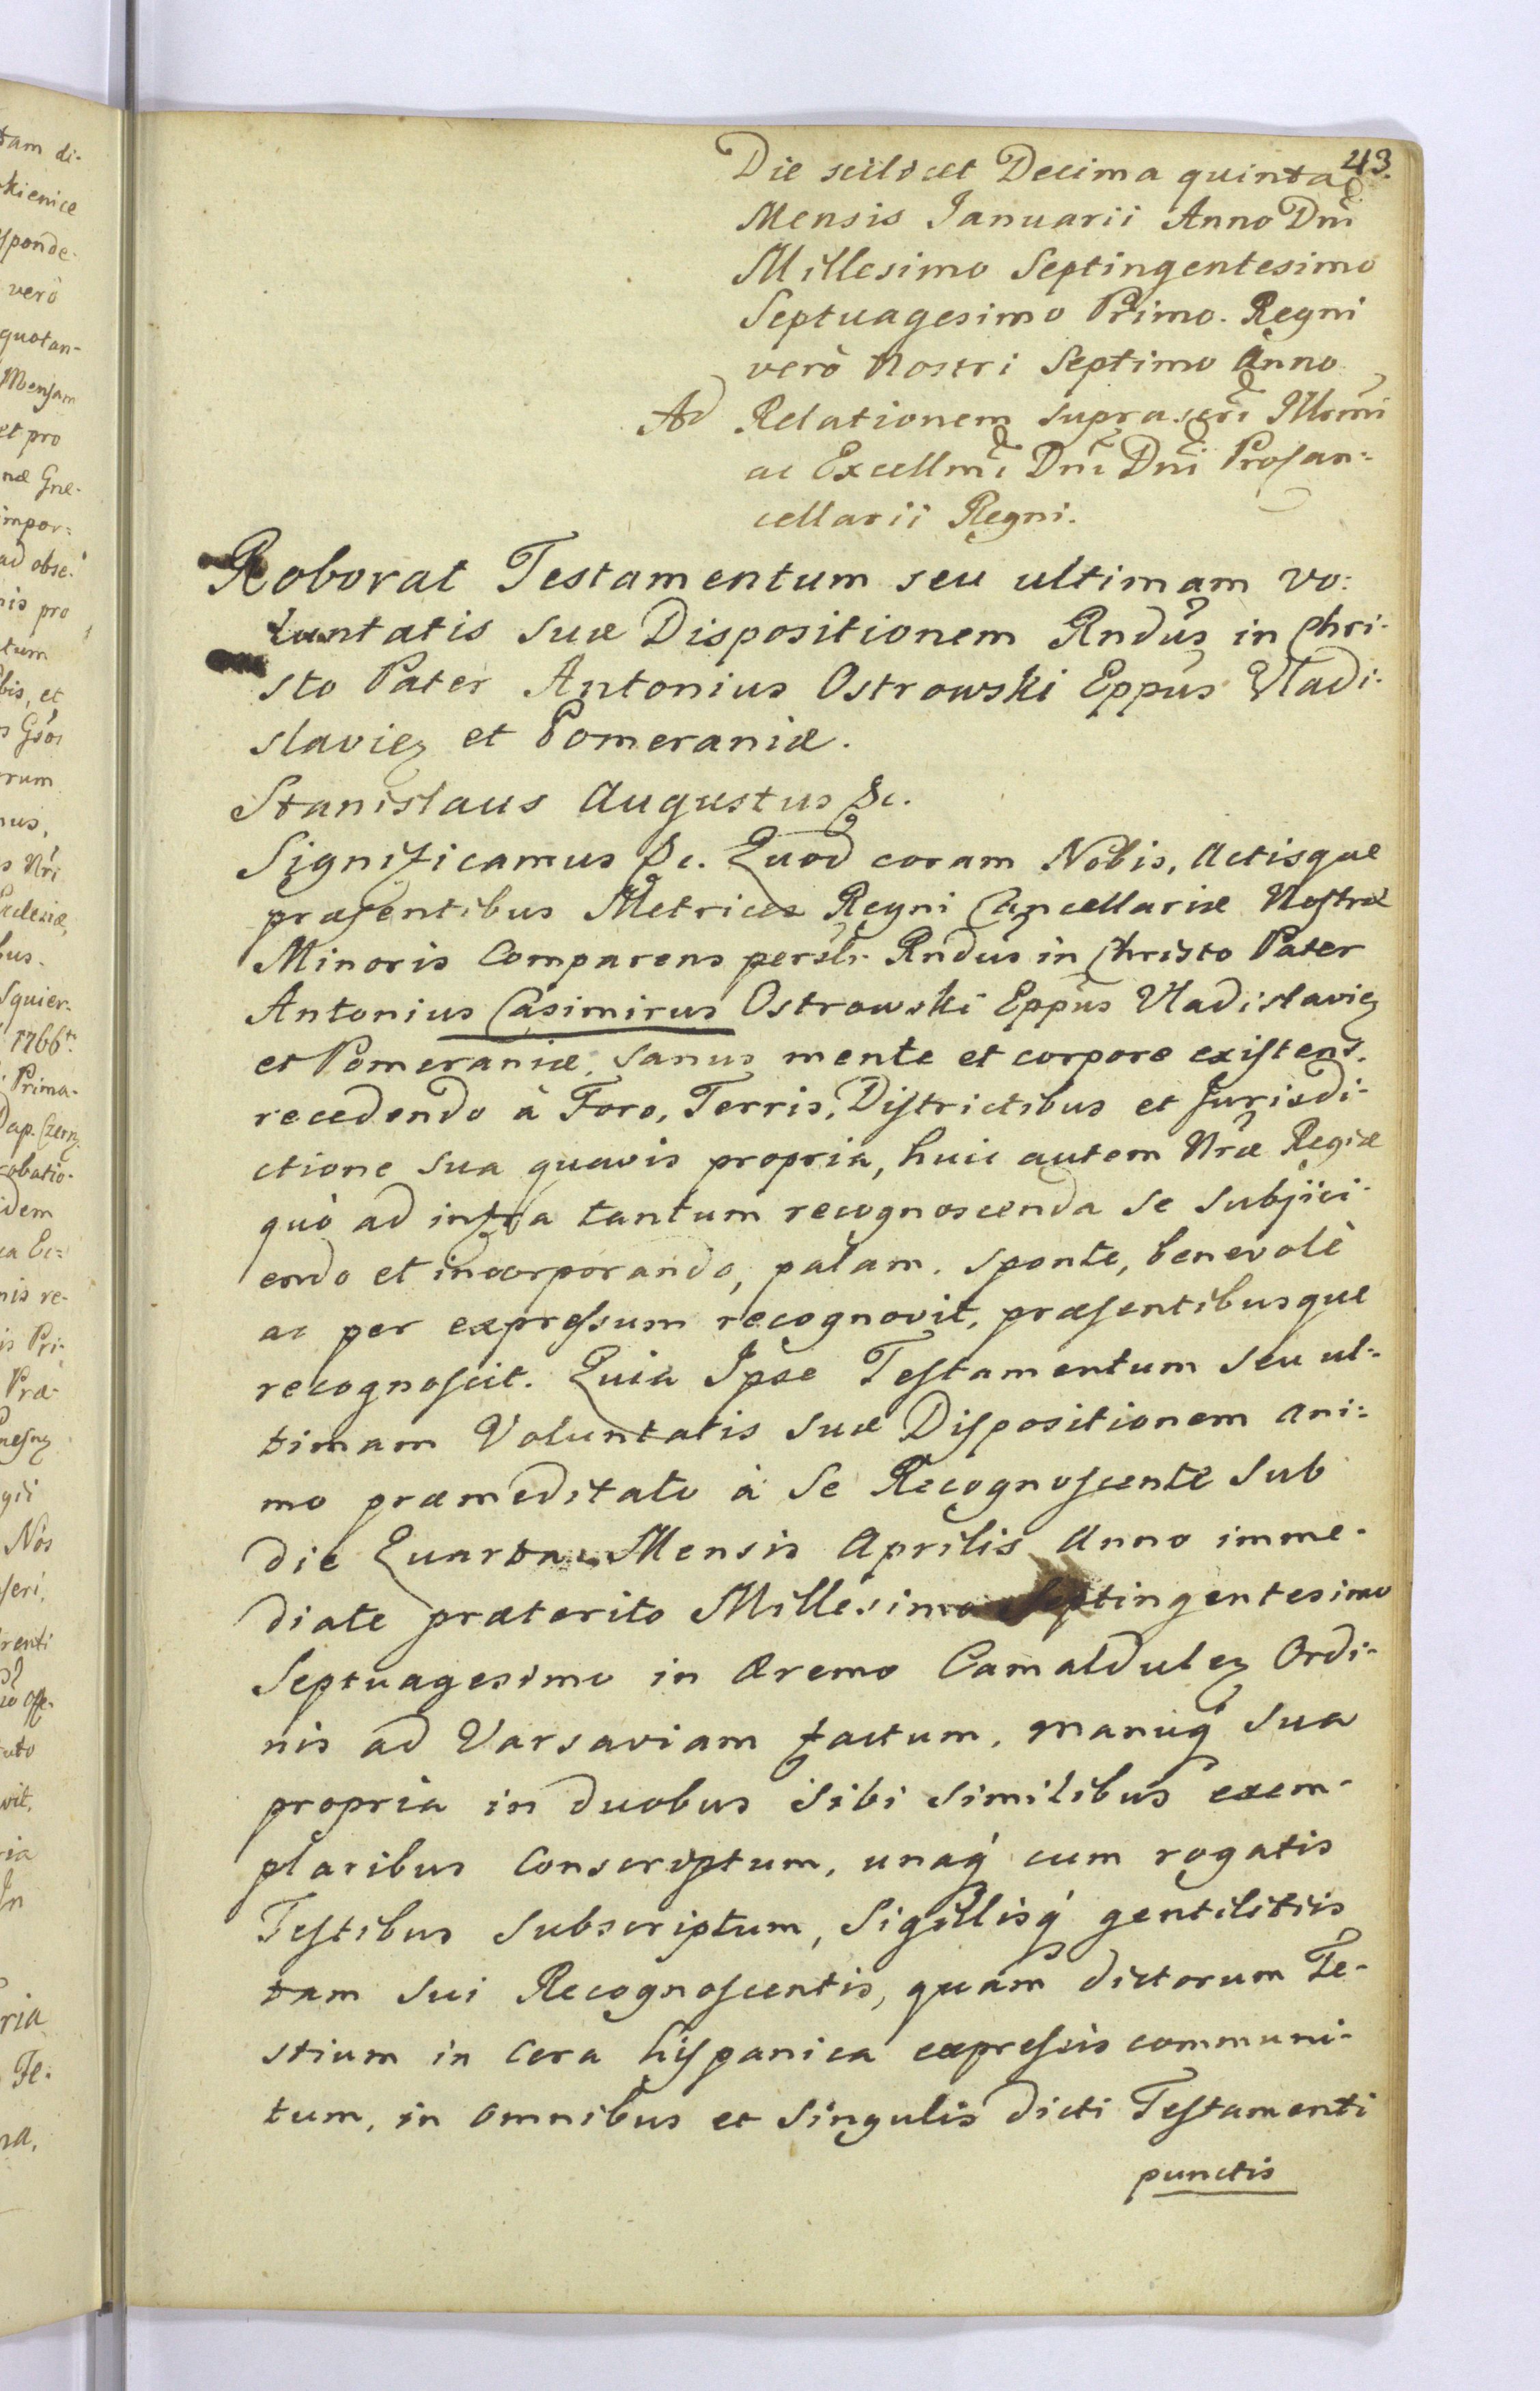 43.
Die scilicet Decima quinta
Mensis Ianuarii Anno Dni
Millesimo Septingentesimo
Septuagesimo Primo. Regni
verò Nostri Septimo Anno
Ad Relationem suprascri Illmi
ac Excellmi Dni Dni Procan:
cellarii Regni.
Roborat Testamentum seu ultimam vo:
luntatis suæ Dispositionem Rndus in Chri-
sto Pater Antonius Ostrowski Eppus Vladi-
slavien et Pomeraniæ.
Stanislaus Augustus &c.
Significamus &c. Quod coram Nobis, Actisque
præsentibus Metrices Regni Cancellariæ Nostræ
Minoris Comparens perslr. Rndus in Christo Pater
Antonius Casimirus Ostrowski Eppus Vladislavien
et Pomeraniæ, sanus mente et corpore existens.
recedendo à Foro, Terris, Districtibus et Jurisdi-
ctione sua quavis propria, huic autem Nræ Regiæ
quò ad infra tantum recognoscenda se subjici-
endo et incorporando, palam, sponte, benevolè
ac per expressum recognovit, præsentibusque
recognoscit. Quia Ipse Testamentum seu ul-
timam Voluntatis suæ Dispositionem ani:
mo præmeditato à se Recognoscente sub
die Quarta Mensis Aprilis Anno imme-
diate præterito Millesimo Septingentesimo
Septuagesimo in Æremo Camaldulen Ordi-
nis ad Varsaviam factum, manuq́ sua
propria in duobus sibi similibus exem-
plaribus conscriptum, unaq́ cum rogatis
Testibus subscriptum, Sigillisq́ gentilitiis
tam sui Recognoscentis, quam dictorum Te-
stium in cera hispanica expressis communi-
tum, in omnibus et singulis dicti Testamenti
punctis